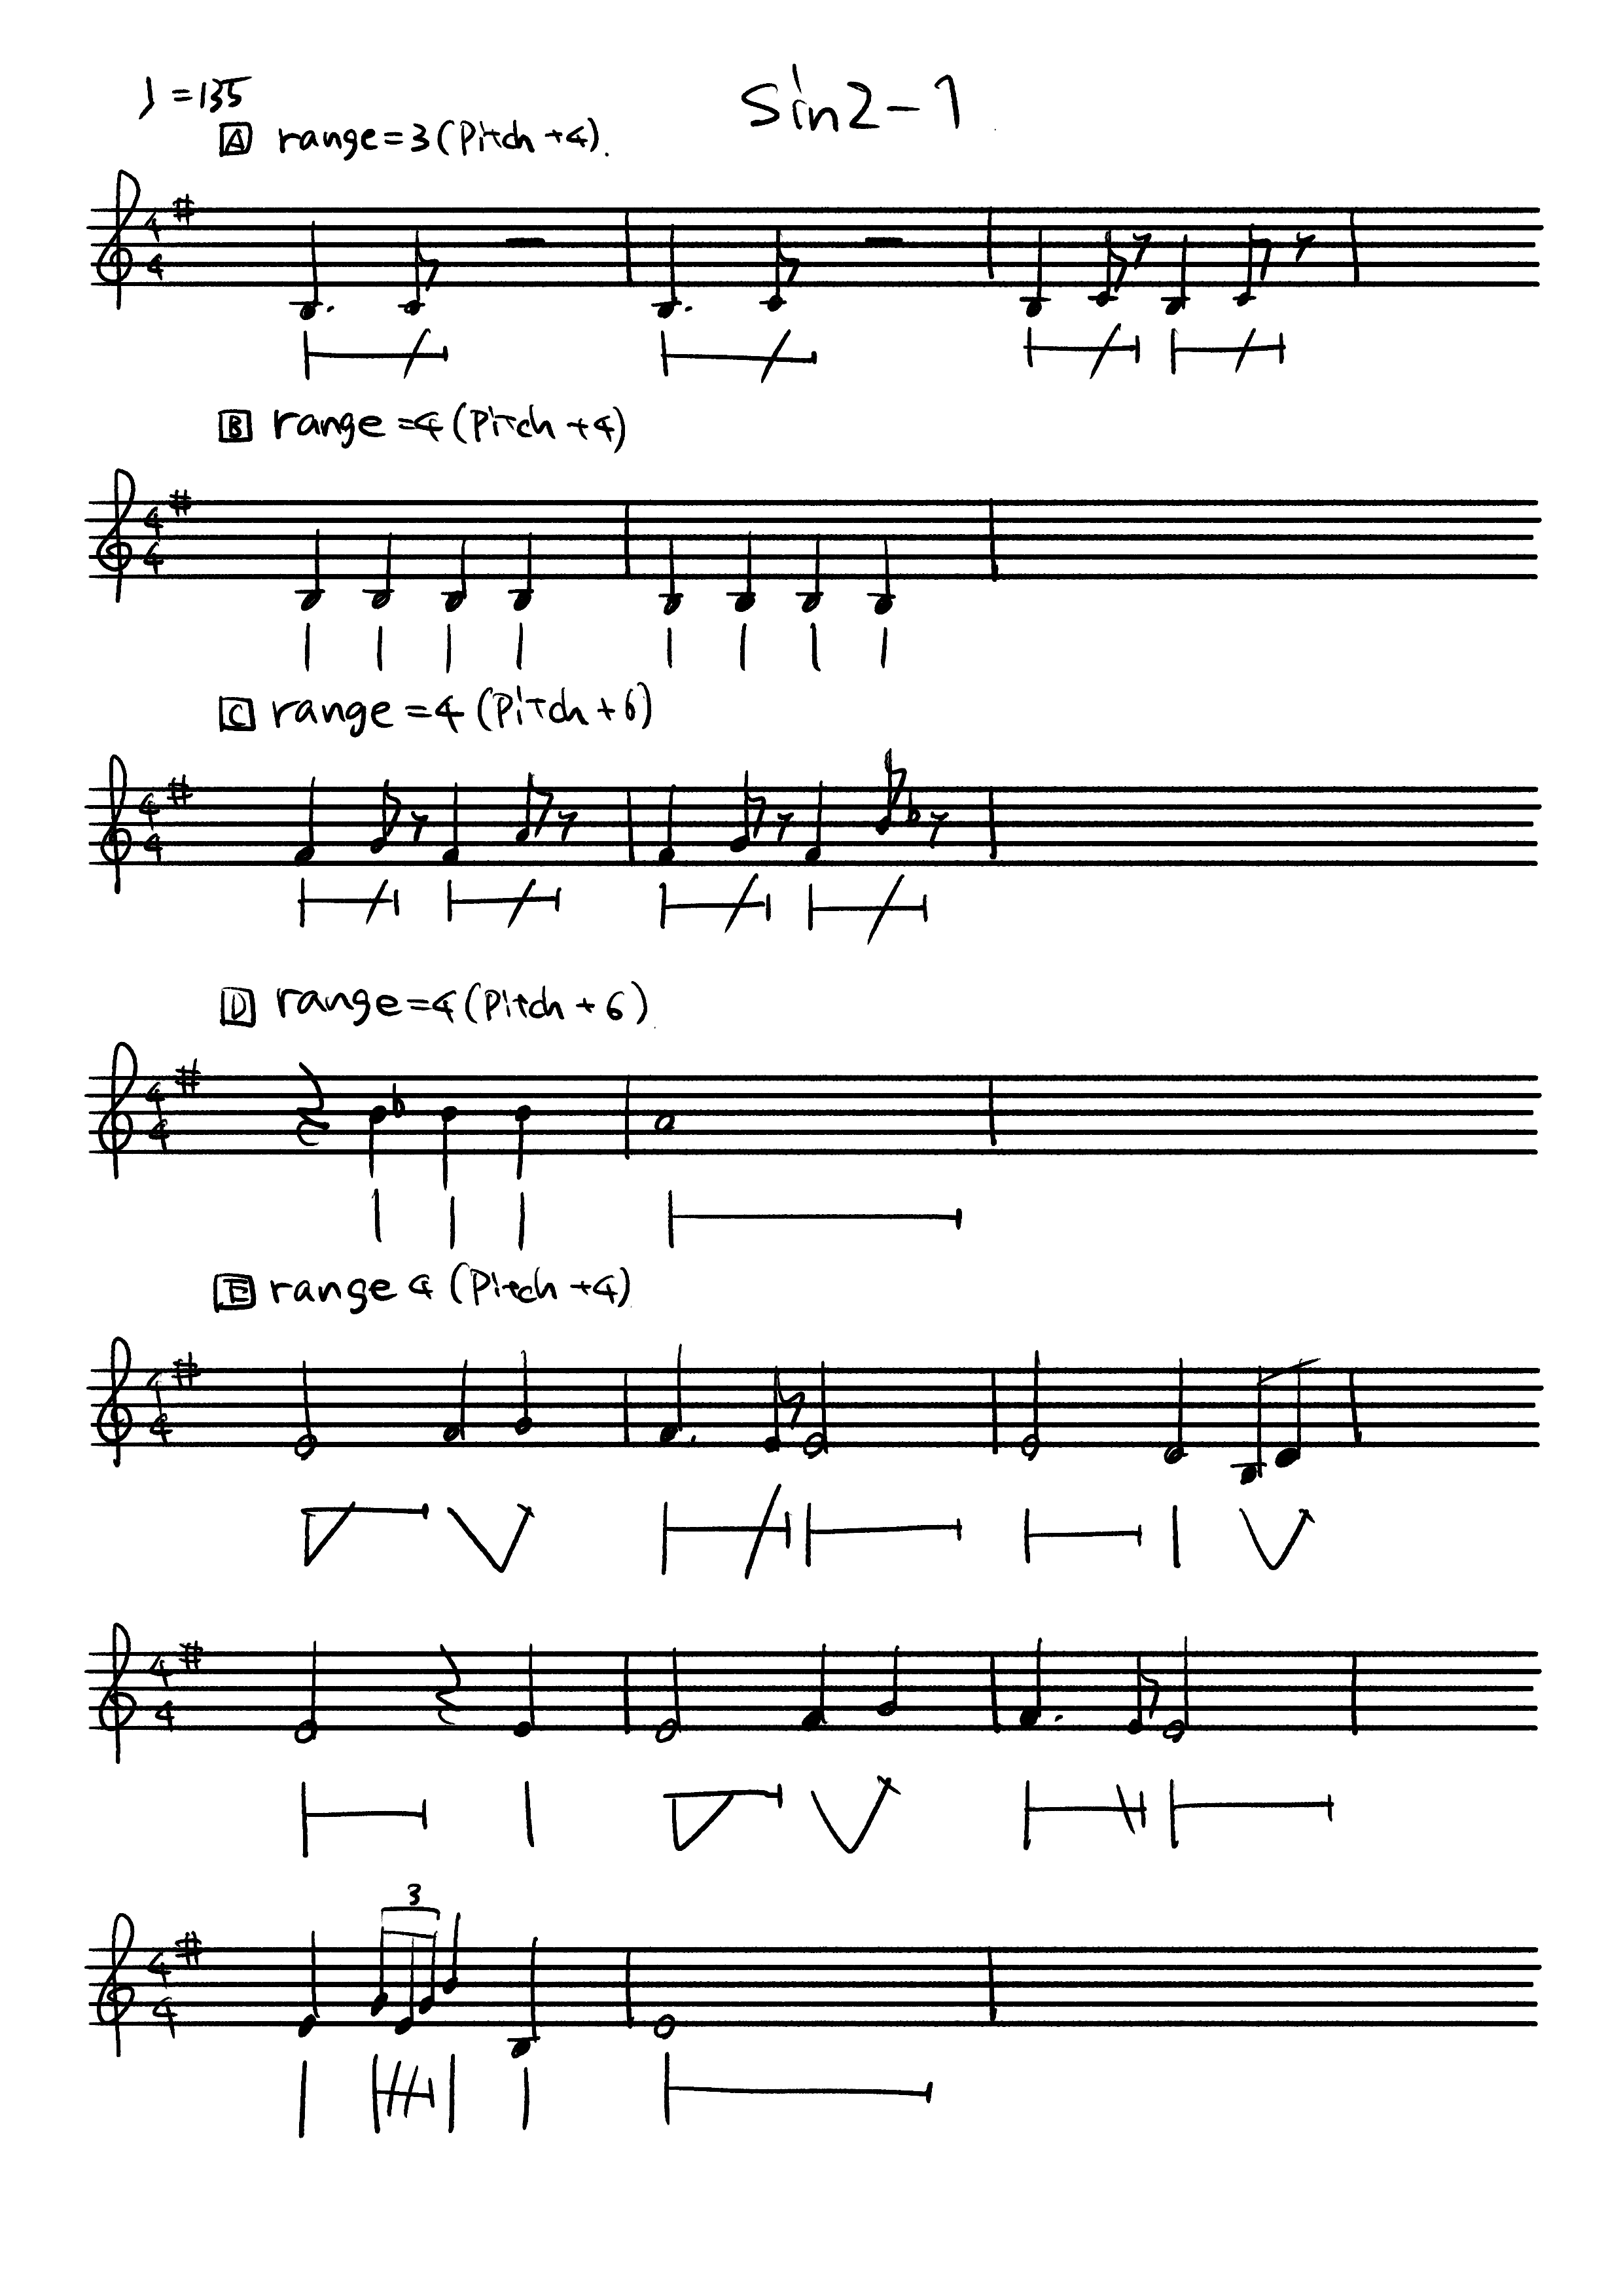 ♩=135
Sin2-1
A range=3(Pitch+4).
4
4
B range=4(Pitch+4)
4
4
C range=4(Pitch+6)
4
4
D range=4(Pitch+6)
4
4
E range 4(Pitch+4)
4
4
4
4
3
4
4